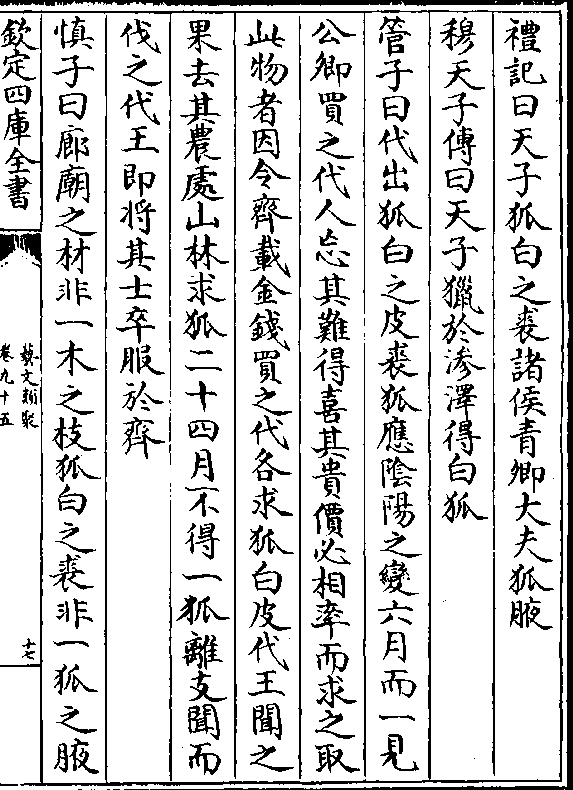 禮記曰天子狐白之裘諸侯青卿大夫狐腋
穆天子傳曰天子獵於渗澤得白狐
管子曰代出狐白之皮裘狐應陰陽之變六月而一見
公卿買之代人忘其難得喜其貴價必相率而求之取
此物者因令齊載金錢買之代各求狐白皮代王聞之
果去其農處山林求狐二十四月不得一狐離支聞而
伐之代王即将其士卒服於齊
慎子曰廊廟之材非一木之枝狐白之裘非一狐之腋
欽定四庫全書
藝文類聚
卷九十五
十七